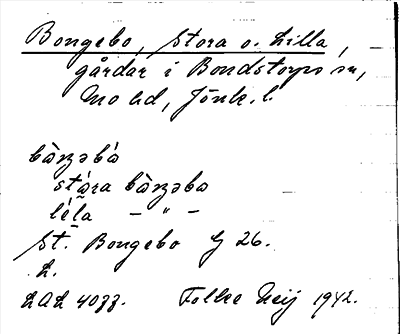 Bongebo, Stora o. Lilla,
gårdar i Bondstorps sn,
Mo hd, Jönk. l.
bàŋəbò
stóra bàŋəbo
léla — " —
St. Bongebo G 26.
L.
LAL 4077. Folke Neij 1942.